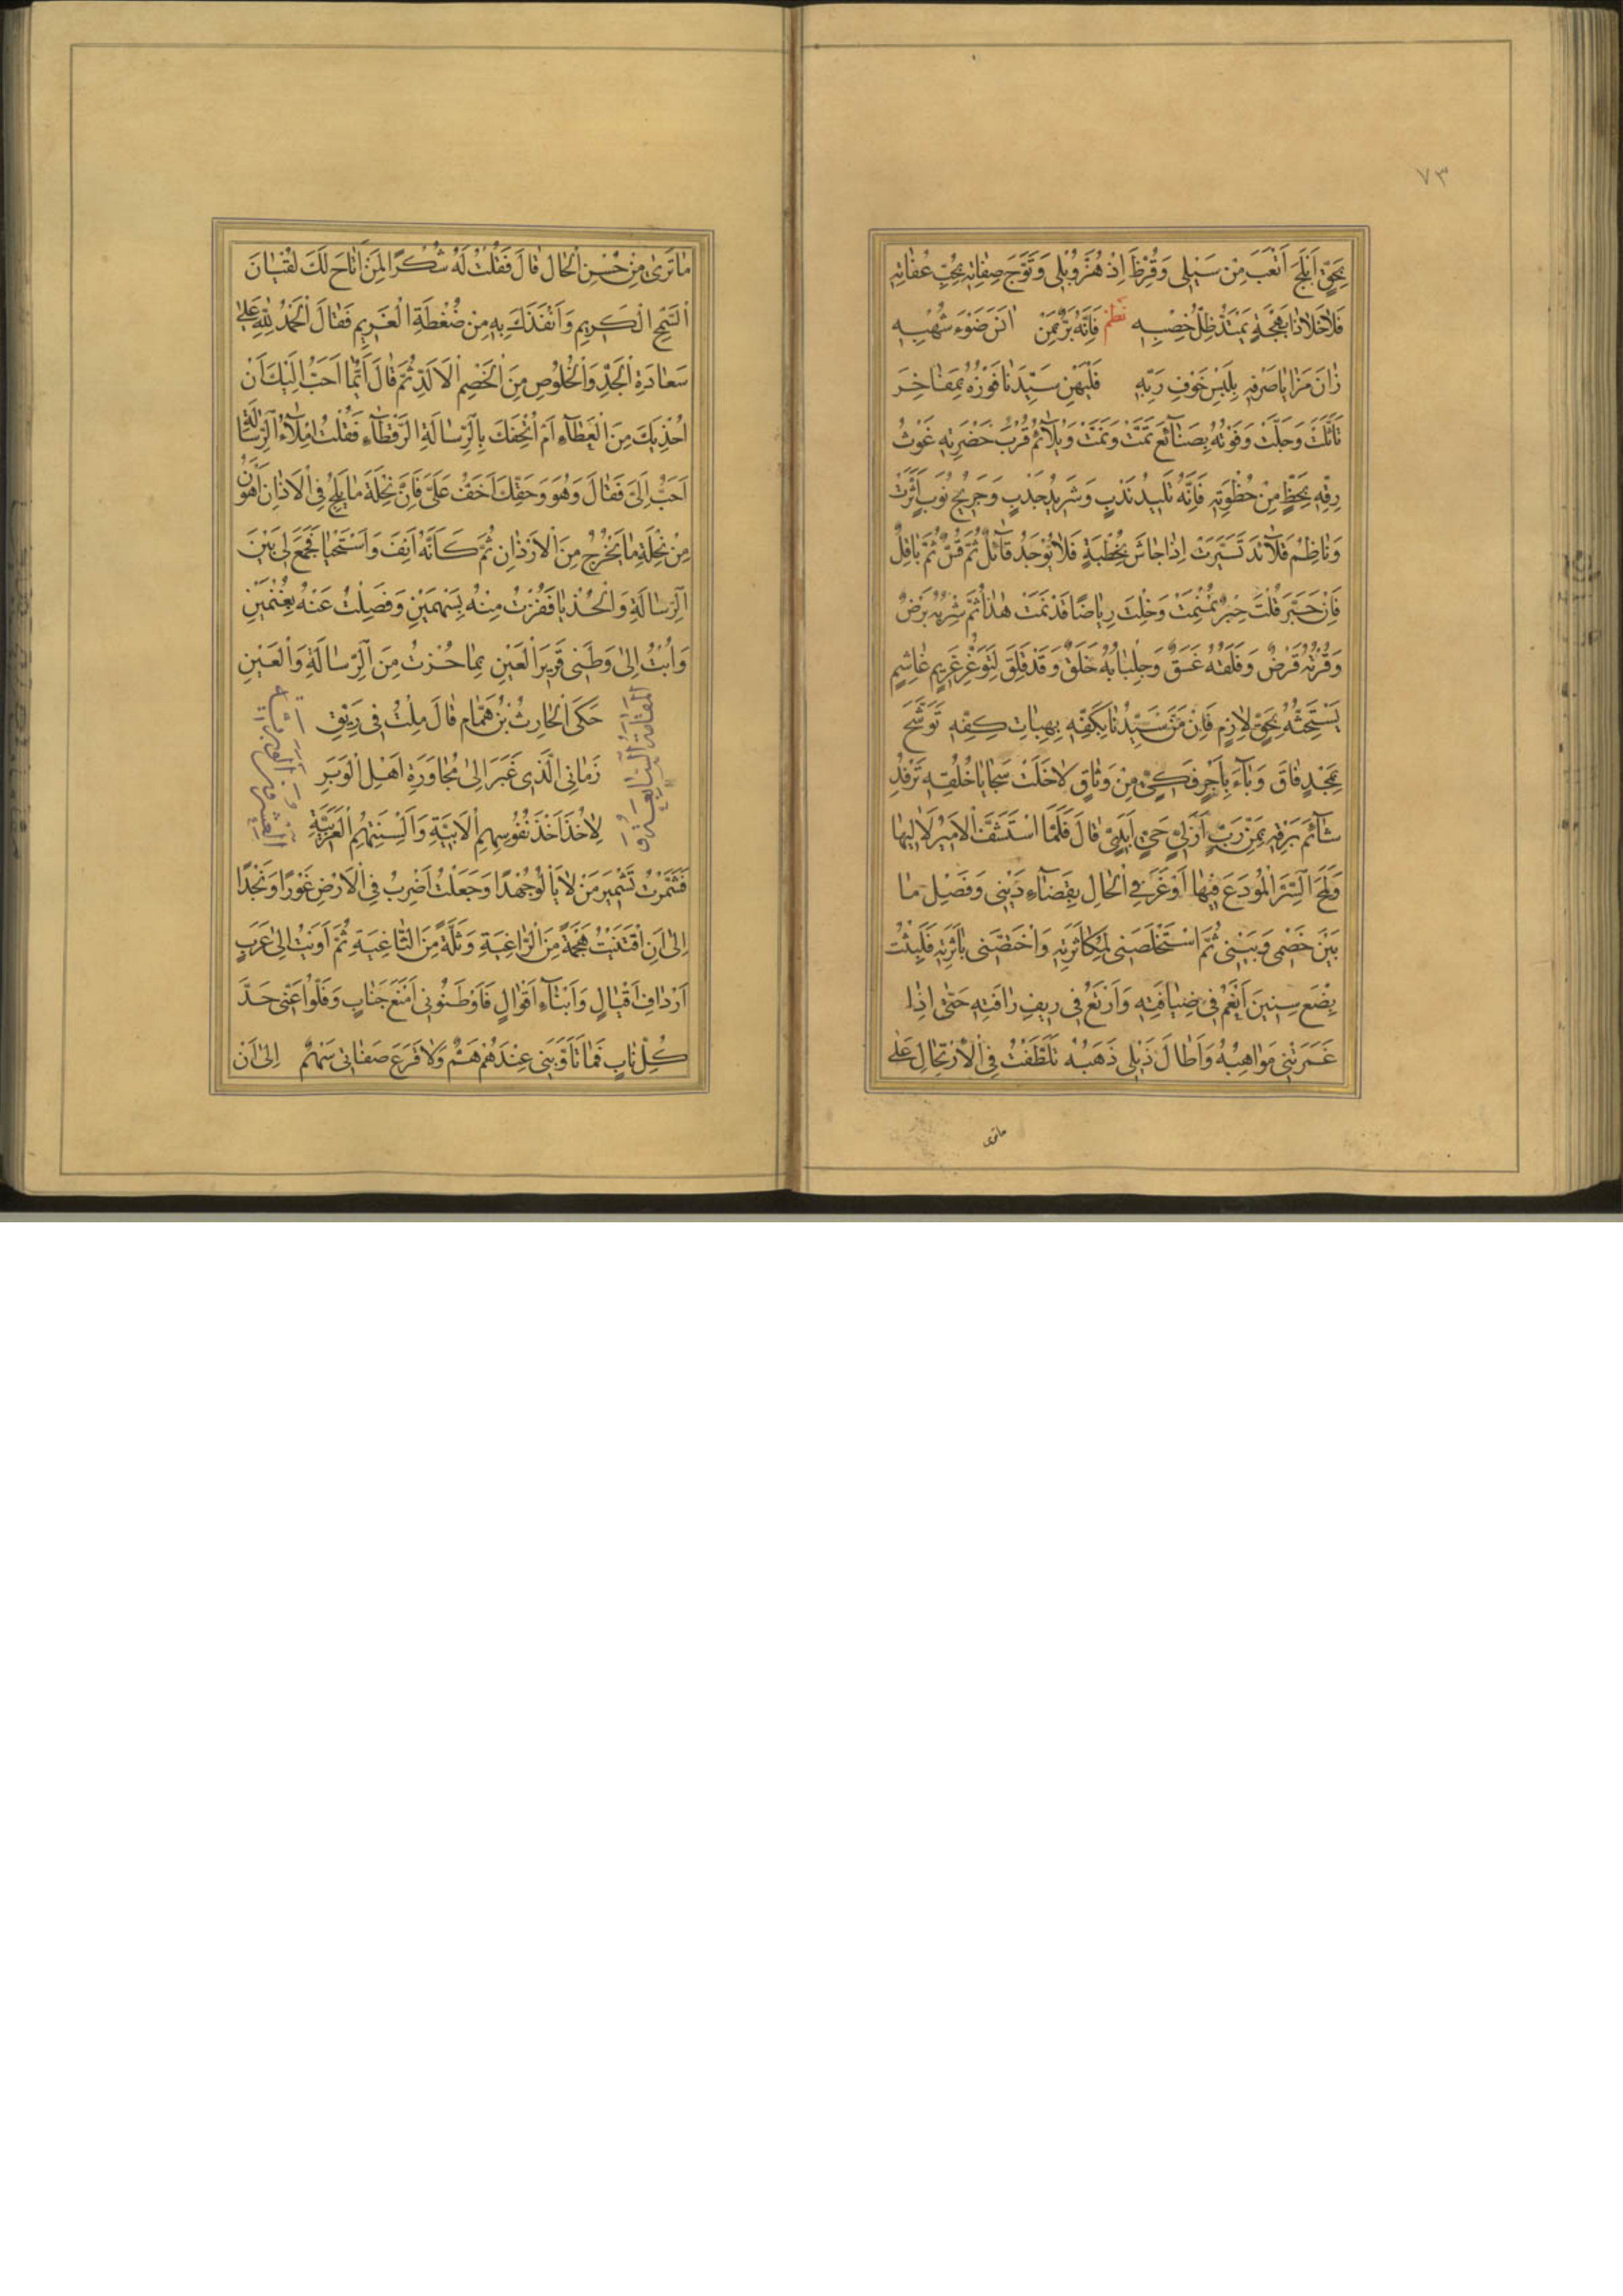 ٧٣
بِحَقٍّ أَبْلَجَ أَنْعَبَ مِنْ سَيْبِلِى وَقُرِّظَ اِذْ هُزَّ وَبُلِى وَتَوَّجَ صِفَاتِهِ بِحُبِّ عُفَاتِهِ
فَلَا خَلَا ذَا بَهْجَةٍ يَمْتَدُّ ظِلُّ خِصْبِهِ نظم فَاِنَّهُ بَرٌّ بِمَنْ اٰنَسَ ضَوْءَ شُهْبِهِ
زَانَ مَزَايَا صَرْفِهِ بِلَبْسِ خَوْفِ رَبِّهِ فَلْيَهْنِ سَيِّدَنَا فَوْزُهُ بِمَفَاخِرَ
تَأَثَّلَتْ وَجَلَّتْ وَفَوْتُهُ بِصَنَائِعَ تَمَّتْ وَنَمَّتْ وَيُلَائِمُ قُرْبُ حَضْرَتِهِ غَوْثُ
رِقِّهِ بِحَظٍّ مِنْ حُظْوَتِهِ فَاِنَّهُ تَلِيدُ نَدْبٍ وَشَرِيدُ جَدْبٍ وَجَرِيحُ نُوَبٍ أَثَّرَتْ
وَنَاظِمُ قَلَائِدَ تَسَيَّرَتْ اِذَا جَاشَ بِخُطْبَةٍ فَلَا يُوجَدُ قَائِلٌ ثُمَّ قُسٌّ ثُمَّ بَاقِلٌ
فَاِنْ حَبَّرَ قُلْتَ حِبَرٌ نُمْنِمَتْ وَخِلْتَ رِيَاضًا قَدْ نَمَتْ هٰذَا ثُمَّ شِرْبُهُ بَرْضٌ
وَقُوتُهُ قَرْضٌ وَفَلَقُهُ غَسَقٌ وَجِلْبَابُهُ خَلَقٌ وَقَدْ قَلِقَ لِتَوَغُّرِ غَرِيمٍ غَاشِمٍ
يَسْتَحِثُّهُ بِحَقٍّ لَازِمٍ فَاِنْ مَنَّ سَيِّدُنَا بِكَفِّهِ بِهِبَاتِ كَفِّهِ تَوَشَّحَ
بِمَجْدٍ فَاقَ وَبَاءَ بِأَجْرِ فَكِّي مِنْ وَثَاقٍ لَا خَلَتْ سَجَايَا خُلُقِهِ تَرْفِدُ
شَائِمَ بَرْقِهِ بِمَنِّ رَبٍّ أَزَلِيٍّ حَيٍّ أَبَدِيٍّ قَالَ فَلَمَّا اسْتَشَفَّ الْاَمِيرُ لَاٰلِيهَا
وَلَمَحَ السِّرَّ الْمُودَعَ فِيهَا أَوْعَزَ فِي الْحَالِ بِقَضَاءِ دَيْنِى وَفَصِيلِ مَا
بَيْنَ خَصْمِى وَبَيْنِى ثُمَّ اسْتَخْلَصَنِى لِمُكَاثَرَتِهِ وَاخْتَصَّنِى بِأَثَرَتِهِ فَلَبِثْتُ
بِضْعَ سِنِينَ أَنْعَمُ فِى ضِيَافَتِهِ وَأَرْتَعُ فِى رِيفِ رَأْفَتِهِ حَتّٰى اِذَا
غَمَرَتْنِى مَوَاهِبُهُ وَأَطَالَ ذَيْلِى ذَهَبُهُ تَلَطَّفْتُ فِى الْاِرْتِحَالِ عَلٰى
ماترى
مَا تَرٰى مِنْ حُسْنِ الْحَالِ قَالَ فَقُلْتُ لَهُ شُكْرًا لِمَنْ أَتَاحَ لَكَ لُقْيَانَ
السَّمْحِ الْكَرِيمِ وَأَنْقَذَكَ بِهِ مِنْ ضُغْطَةِ الْغَرِيمِ فَقَالَ الْحَمْدُ لِلّٰهِ عَلٰى
سَعَادَةِ الْجَدِّ وَالْخُلُوصِ مِنَ الْخَصْمِ الْاَلَدِّ ثُمَّ قَالَ أَيُّمَا أَحَبُّ اِلَيْكَ أَنْ
اُحْذِيَكَ مِنَ الْعَطَاءِ أَمْ اُتْحِفَكَ بِالرِّسَالَةِ الرَّقْطَاءِ فَقُلْتُ اِمْلَاءُ الرِّسَالَةِ
أَحَبُّ اِلَىَّ فَقَالَ وَهُوَ وَحَقِّكَ أَخَفُّ عَلَىَّ فَاِنَّ نِحْلَةَ مَا يَلِجُ فِى الْاٰذَانِ أَهْوَنُ
مِنْ نِحْلَةِ مَا يَخْرُجُ مِنَ الْاَرْدَانِ ثُمَّ كَأَنَّهُ أَنِفَ وَاسْتَحْيَا فَجَمَعَ لِى بَيْنَ
الرِّسَالَةِ وَالْحُذْيَا فَفُزْتُ مِنْهُ بِسَهْمَيْنِ وَفَصَلْتُ عَنْهُ بِغُنْمَيْنِ
وَاُبْتُ اِلٰى وَطَنِى قَرِيرَ الْعَيْنِ بِمَا حُزْتُ مِنَ الرِّسَالَةِ وَالْعَيْنِ
المقامة السابعة و
العشرون
حَكَى الْحَارِثُ بْنُ هَمَّامٍ قَالَ مِلْتُ فِى رَيِّقِ
زَمَانِى الَّذِى غَبَرَ اِلٰى مُجَاوَرَةِ أَهْلِ الْوَبَرِ
لِاٰخُذَ أَخْذَ نُفُوسِهِمِ الْاَبِيَّةِ وَأَلْسِنَتِهِمِ الْعَرَبِيَّةِ
فَشَمَّرْتُ تَشْمِيرَ مَنْ لَا يَأْلُو جُهْدًا وَجَعَلْتُ أَضْرِبُ فِى الْاَرْضِ غَوْرًا وَنَجْدًا
اِلٰى أَنِ اقْتَنَيْتُ هَجْمَةً مِنَ الرَّاغِيَةِ وَثَلَّةً مِنَ الثَّاغِيَةِ ثُمَّ أَوَيْتُ اِلٰى عَرَبٍ
أَرْدَافِ أَقْيَالٍ وَأَبْنَاءِ أَقْوَالٍ فَأَوْطَنُونِى أَمْنَعَ جَنَابٍ وَفَلُّوا عَنِّى حَدَّ
كُلِّ نَابٍ فَمَا تَأَوَّبَنِى عِنْدَهُمْ هَمٌّ وَلَا قَرَعَ صَفَاتِى سَهْمٌ اِلٰى أَنْ